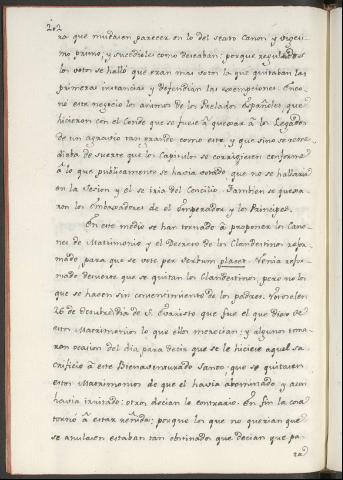 202
ra que mudasen parecer en lo del sexto Canon y vigesi-
mo primo, y sucedioles como deseaban; porque regulados
los votos se halló que eran mas votos los que quitaban las
primeras instancias y defendian las exempciones. Enco-
nó este negocio los animos de los Prelados Españoles, que
hicieron con el Conde que se fuese à quexar à los Legados
de un agravio tan grande como este, y que sino se reme
diaba de suerte que los Capitulos se corrigiesen conforme
à lo que publicamente se havia votado, que no se hallaria
en la Sesion y el se iria del Concilio. Tambien se quexa-
ron los Embaxadores de el Emperador y los Principes.
En este medio se han tornado à proponer los Cano-
nes de Matrimonio y el Decreto de los Clandestinos refor-
mado, para que se vote per verbum placet. Venia refor-
mado de suerte que se quitan los Clandestinos, pero no los
que se hacen sin consentimiento de los padres. Votose en
26 de Octubre dia de S. Evaristo que fue el que dixo de
estos Matrimonios lo que ellos merecian: y algunos toma-
ron ocasion del dia para decir que se le hiciese aquel sa-
crificio à este Bienaventurado Santo, que se quitasen
estos Matrimonios de que el havia abominado y aun
havia irritado: otros decian lo contrario. En fin la cosa
tornó à estar reñida; porque los que no querian que
se anulasen estaban tan obstinados que decian que pa-
ra